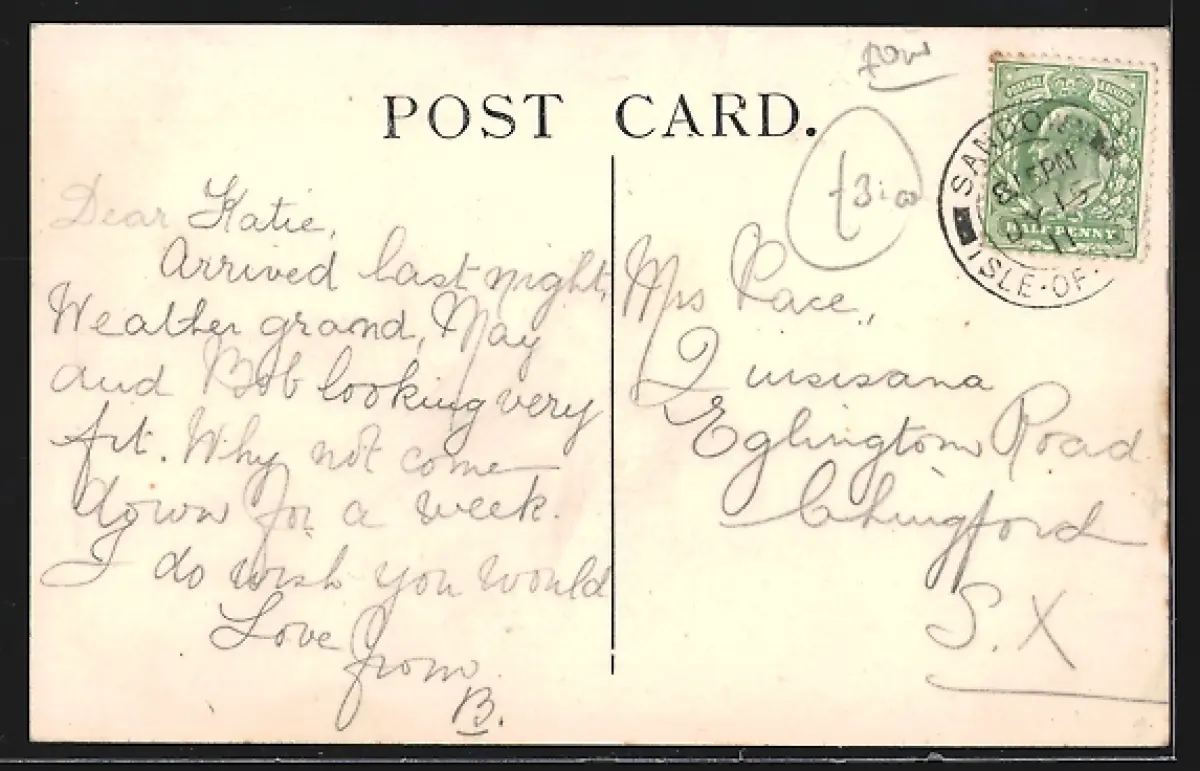 POST CARD.
Dear Katie,
Arrived last night,
Weather grand, May
and Bob looking very
fit. Why not come
down for a week.
I do wish you would
Love
from
B.
Mrs Race,
Quisisana
Eglington Road
Chingford
S. X
SANDOWN
8 15 PM
15
11
ISLE·OF·
HALF PENNY